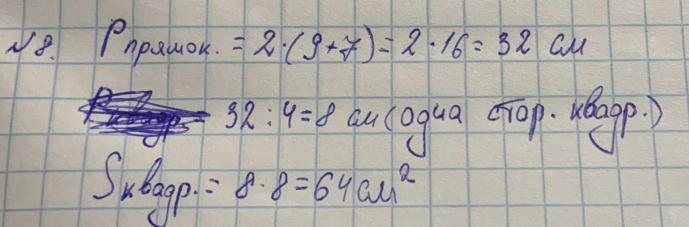 №8. Pпрямок. = 2·(9+7)=2·16=32 см
32:4=8 см(одна стор. квадр.)
Sквадр.= 8·8=64см²